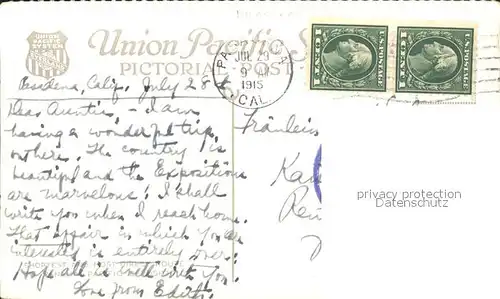 UNION
PACIFIC
SYSTEM
Union Pacific S
PICTORIAL POST
JUL 29
9
1915
CAL.
1 CENT 1
1 CENT 1
U.S. POSTAGE
U.S. POSTAGE
Pasadena, Calif. July 28th
Dear Auntie, - I am
having a wonderful trip
out here. The country is
beautiful and the Expositions
are marvelous. I shall
write you when I reach home.
That affair in which you are
interested is entirely over.
Hope all is well with you.
Love from Edith.
Fräulein
privacy protection
Datenschutz